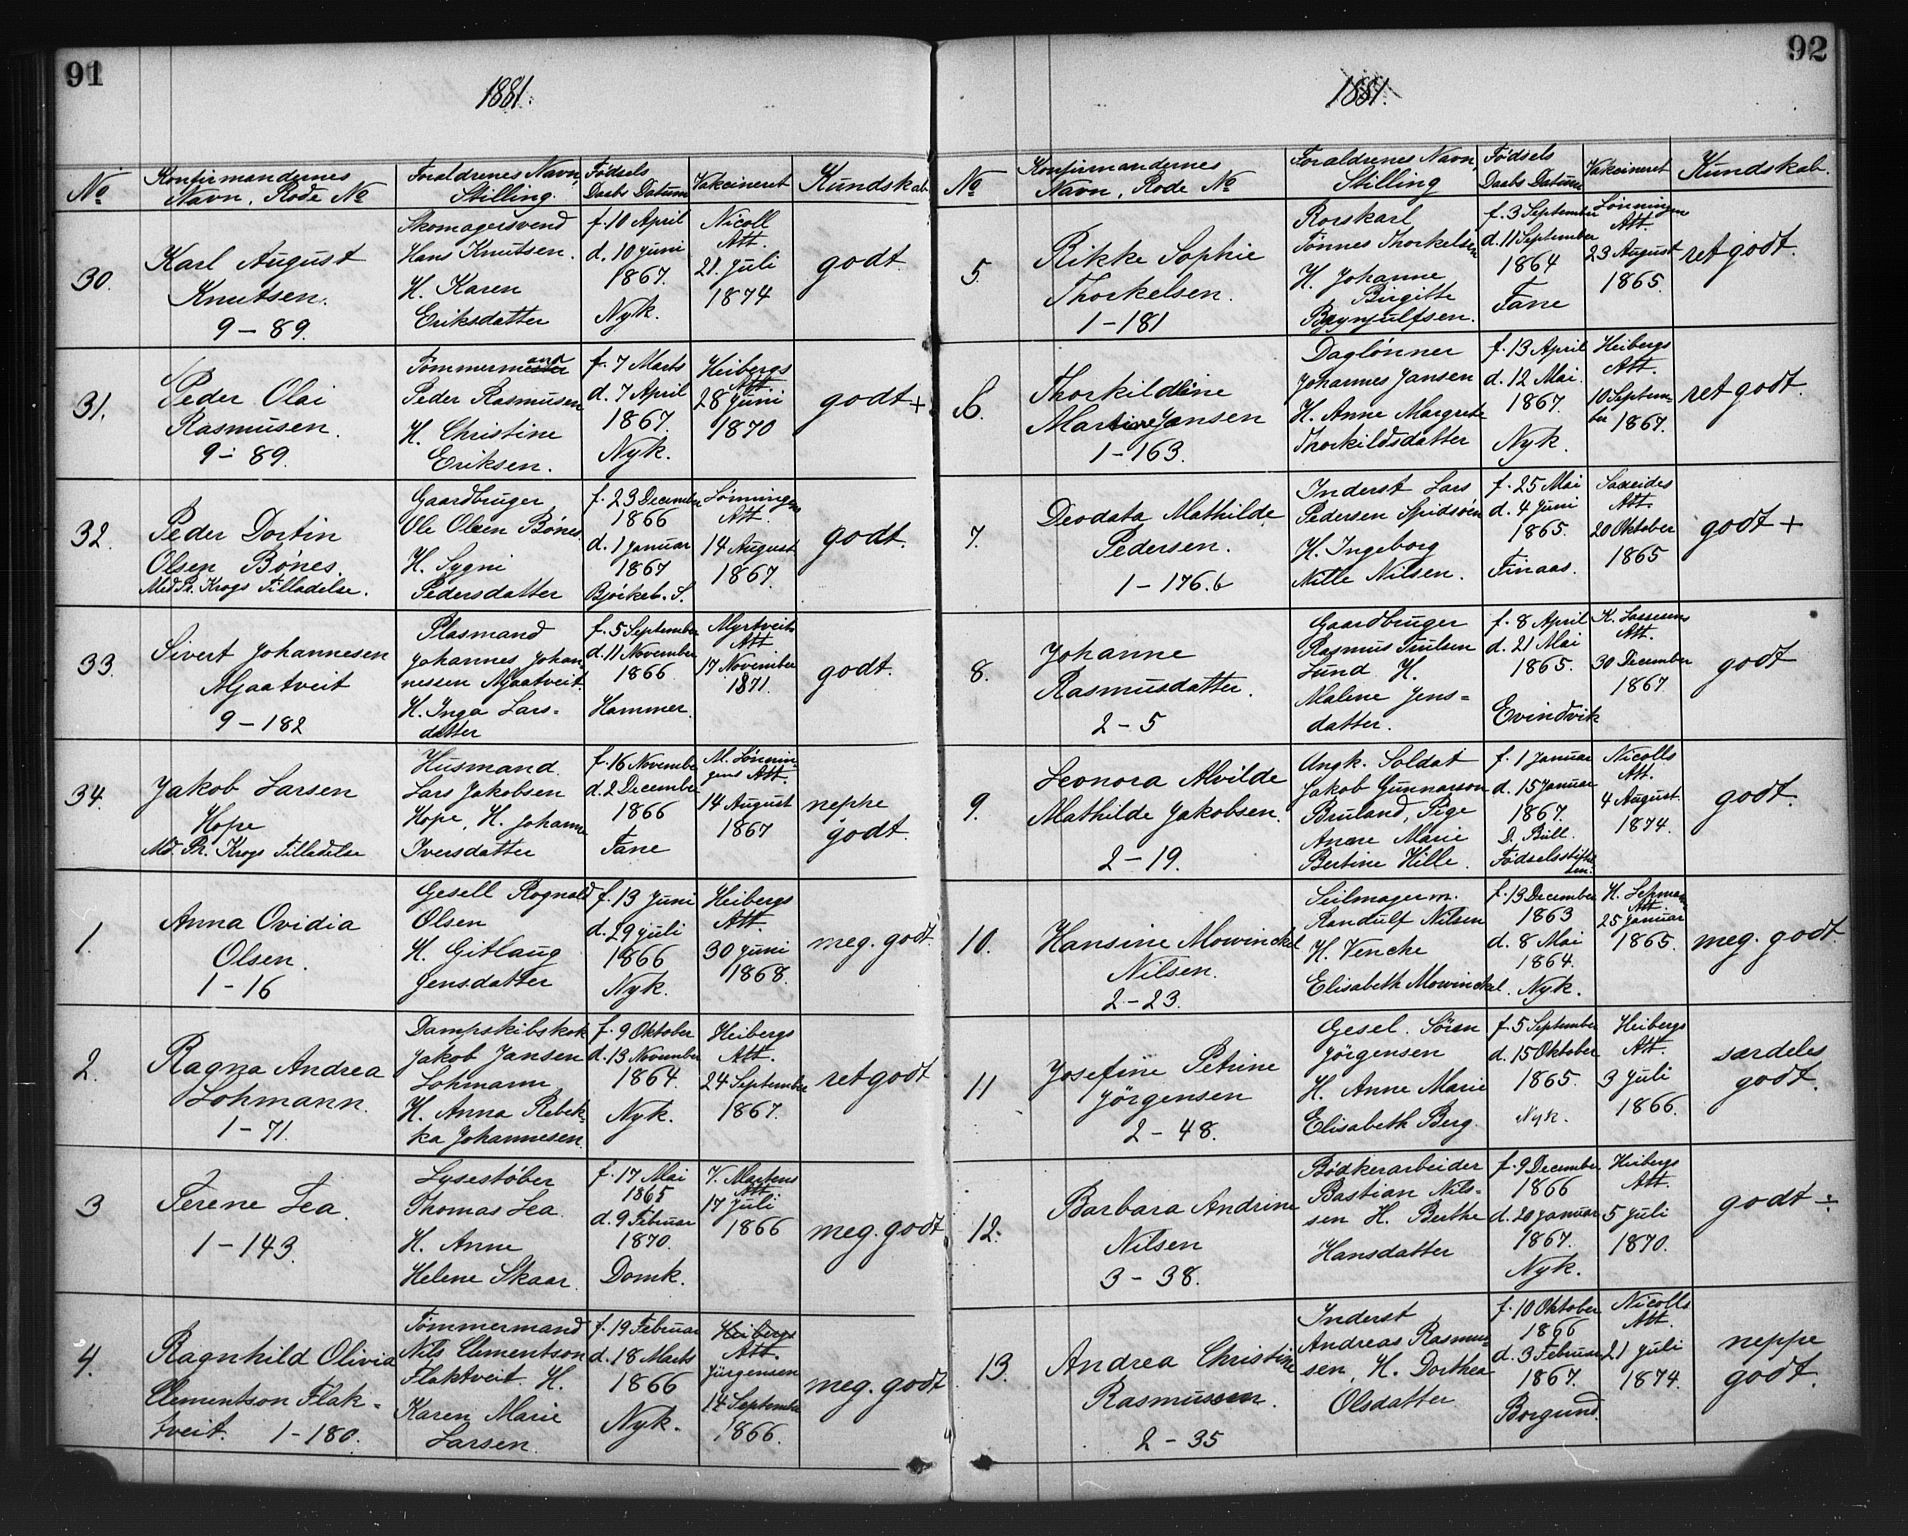 91
1881.
No
Konfirmandernes
Navn, Rode No
Forældrenes Navn,
Stilling.
Fødsels
Daabs Datum
Vakcineret
Kundskab
30.
Karl August
Knutsen.
9 - 89.
Skomagersvend
Hans Knutsen.
H. Karen
Eriksdatter
f. 10 April
d. 10 Juni
1867.
Nyk.
Nicoll
Att.
21. Juli
1874
godt.
31.
Peder Olai
Rasmusen.
9 - 89.
Tømmermand
Peder Rasmusen
H. Christine
Eriksen.
f. 7 Marts
d. 7 April
1867.
Nyk.
Heibergs
Att.
28 Juni
1870
godt +
32.
Peder Dortin
Olsen Bønes.
Med Pr. Krogs Tilladelse.
Gaardbruger
Ole Olsen Bønes
H. Sygni
Pedersdatter
f. 23 December
1866
d. 1 Januar
1867
Bjørkeb. S.
Lønningen
Att.
14 August
1867.
godt.
33.
Sivert Johannesen
Mjaatveit
9 - 182
Plasmand
Johannes Johan
nessen Mjaatveit.
H. Inga Lars-
datter
f. 5 September
d. 11 November
1866
Hammer.
Myrtveits
Att
17 November
1871.
godt.
34.
Jakob Larsen
Hope
Md. Pr. Krogs Tilladelse
Husmand
Lars Jakobsen
Hope, H. Johanne
Iversdatter
f. 16 November
d. 2 December
1866
Fane
M. Lønnin
gens Att.
14 August
1867
neppe
godt.
1.
Anna Ovidia
Olsen.
1 - 16
Gesell Rognald
Olsen
H. Gitlaug
Jensdatter
f. 13 Juni
d. 29 Juli
1866
Nyk.
Heibergs
Att.
30 Juni
1868.
meg. godt.
2.
Ragna Andrea
Lohmann.
1 - 71.
Dampskibskok
Jakob Jansen
Lohmann
H. Anna Rebek-
ka Johannesen
f. 9 Oktober
d. 13 November
1864.
Nyk.
Heibergs
Att.
24 September
1867.
ret godt
3
Terene Lea.
1 - 143.
Lysestøber
Thomas Lea
H. Anne
Helene Skaar.
f. 17 Mai
1865
d. 9 Februar
1870.
Domk.
V. Martens
Att
17 Juli
1866
meg. godt.
4.
Ragnhild Olivia
Clementson Flak-
tveit. 1 - 180.
Tømmermand
Nils Clementson
Flaktveit. H.
Karen Marie
Larsen.
f. 19 Februar
d. 18 Marts
1866
Nyk.
Heibergs
Att.
Jürgensen
14 September
1866.
meg. godt
92
1881.
No
Konfirmandernes
Navn, Rode No
Forældrenes Navn,
Stilling
Fødsels
Daabs Datum
Vakcineret
Kundskab.
5.
Rikke Sophie
Thorkelsen.
1 - 181
Rorskarl
Tønnes Thorkelsen
H. Johanne
Birgitte
Brynjulfsen.
f. 3 September
d. 11 September
1864
Fane
Lønningen
Att.
23 August
1865.
ret godt.
6.
Thorkildine
Martine Jansen
1 - 163.
Daglønner
Johannes Jansen
H. Anne Margrete
Thorkildsdatter
f. 13 April
d. 12 Mai
1867.
Nyk.
Heibergs
Att.
10 Septem-
ber 1867.
ret godt.
7.
Deodata Mathilde
Pedersen.
1 - 176.b
Inderst Lars
Pedersen Spidsøen
H. Ingeborg
Mille Nilsen.
f. 25 Mai
d. 4 Juni
1865.
Finaas.
Saxeides
Att.
20 Oktober
1865
godt +
8.
Johanne
Rasmusdatter.
2 - 5
Gaardbruger
Rasmus Trulsen
Lund H.
Malene Jens-
datter.
f. 8 April
d. 21 Mai
1865.
Evindvik
K. Lassens
Att.
30 December
1867
godt
9.
Leonora Alvilde
Mathilde Jakobsen.
2 - 19.
Ungk. Soldat
Jakob Gunnarson
Bruland, Pige
Anne Marie
Bertine Hille.
f. 1 Januar
d. 15 Januar
1867.
D. Bull.
Fødselsstiftel
sen.
Nicolls
Att.
4 August.
1874.
godt.
10.
Hansine Mowinckel
Nilsen.
2 - 23.
Seilmagerm.
Randulf Nilsen
H. Vencke
Elisabeth Mowinckel.
f. 13 December
1863
d. 8 Mai
1864.
Nyk.
Att
25 Januar
1865.
meg. godt.
11
Josefine Petrine
Jørgensen
2 - 48.
Gesel. Søren
Jørgensen
H. Anne Marie
Elisabeth Berg.
f. 5 September
d. 15 Oktober
1865.
Nyk.
Heibergs
Att.
3 Juli
1866.
særdeles
godt.
12.
Barbara Andrine
Nilsen
3 - 38.
Bødkerarbeider
Bastian Nils-
sen H. Berthe
Hansdatter
f. 9 December
1866
d. 20 Januar
1867.
Nyk.
Heibergs
Att.
5 Juli
1870.
godt ÷
13.
Andrea Christine
Rasmussen.
2 - 35
Inderst
Andreas Rasmus-
sen, H. Dorthea
Olsdatter
f. 10 Oktober
1866
d. 3 Februar
1867.
Borgund.
Nicolls
Att.
21 Juli
1874.
neppe
godt.